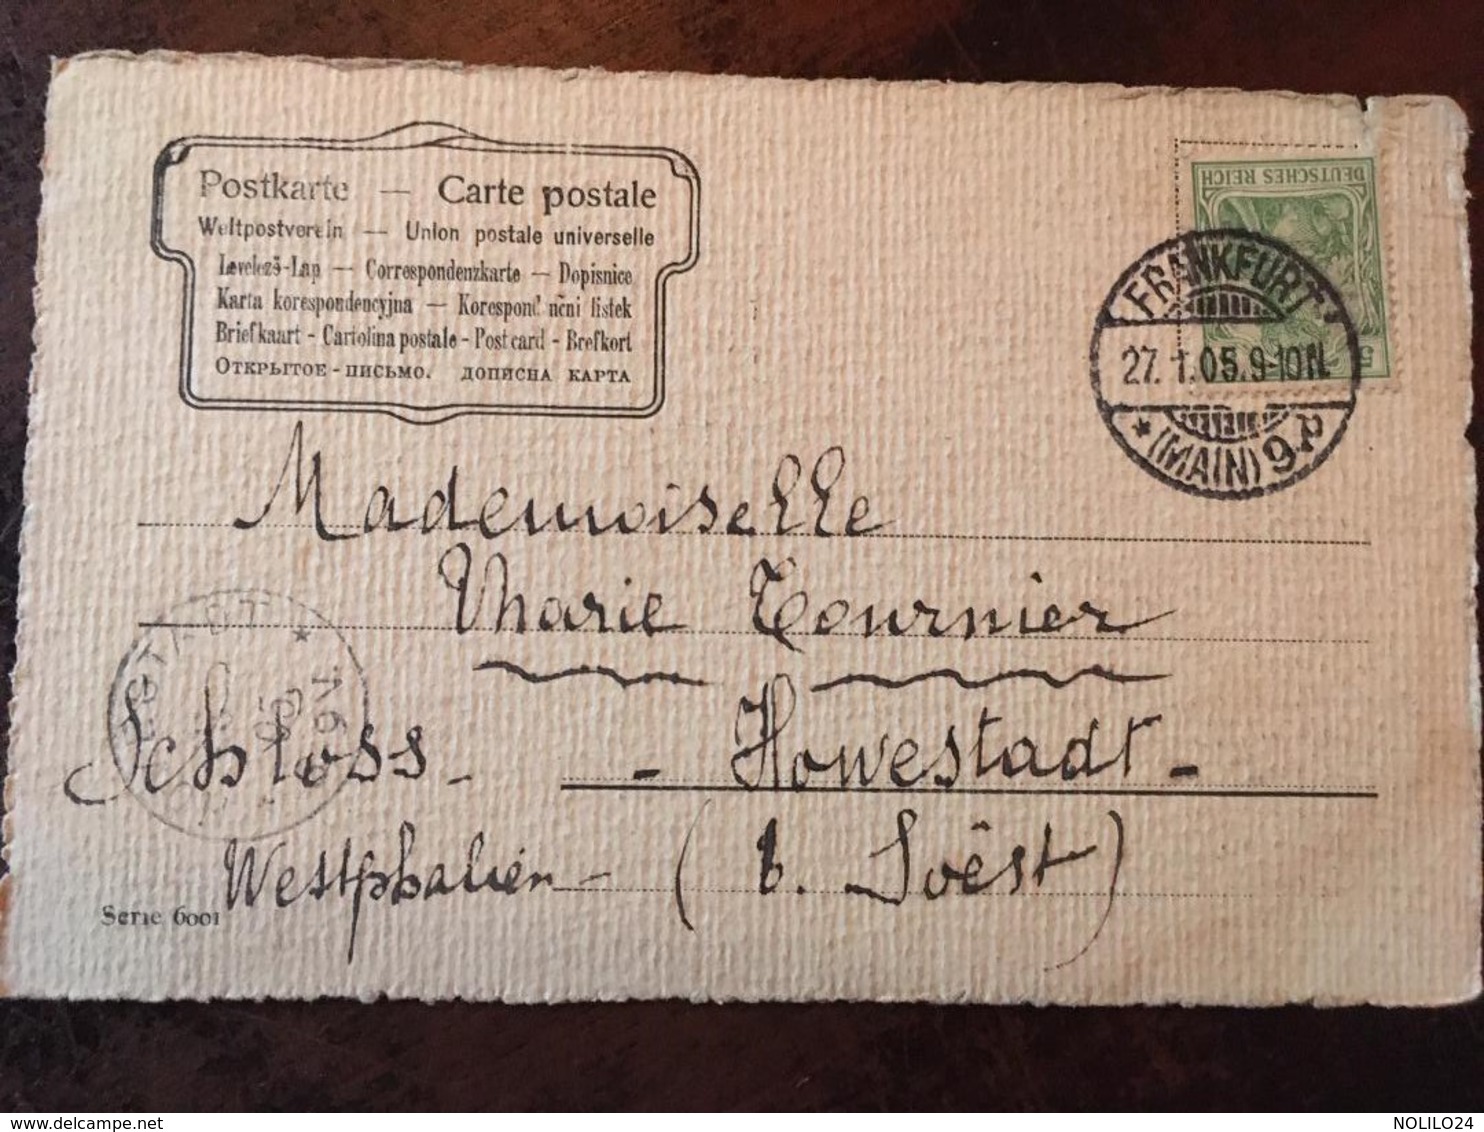 Postkarte — Carte postale
Weltpostverein — Union postale universelle
Levelező-Lap — Correspondenzkarte — Dopisnice
Karta korespondencyjna — Korespond nčni listek
Briefkaart - Cartolina postale - Post card - Brefkort
Открытое - письмо. дописна карта
DEUTSCHES REICH
5
FRANKFURT
27. 1. 05. 9-10 N.
* (MAIN) 9.P
Mademoiselle
Marie Tournier
Schloss - - Howestadt -
Westphalien - ( b. Soëst )
Serie 6001
NOLILO24